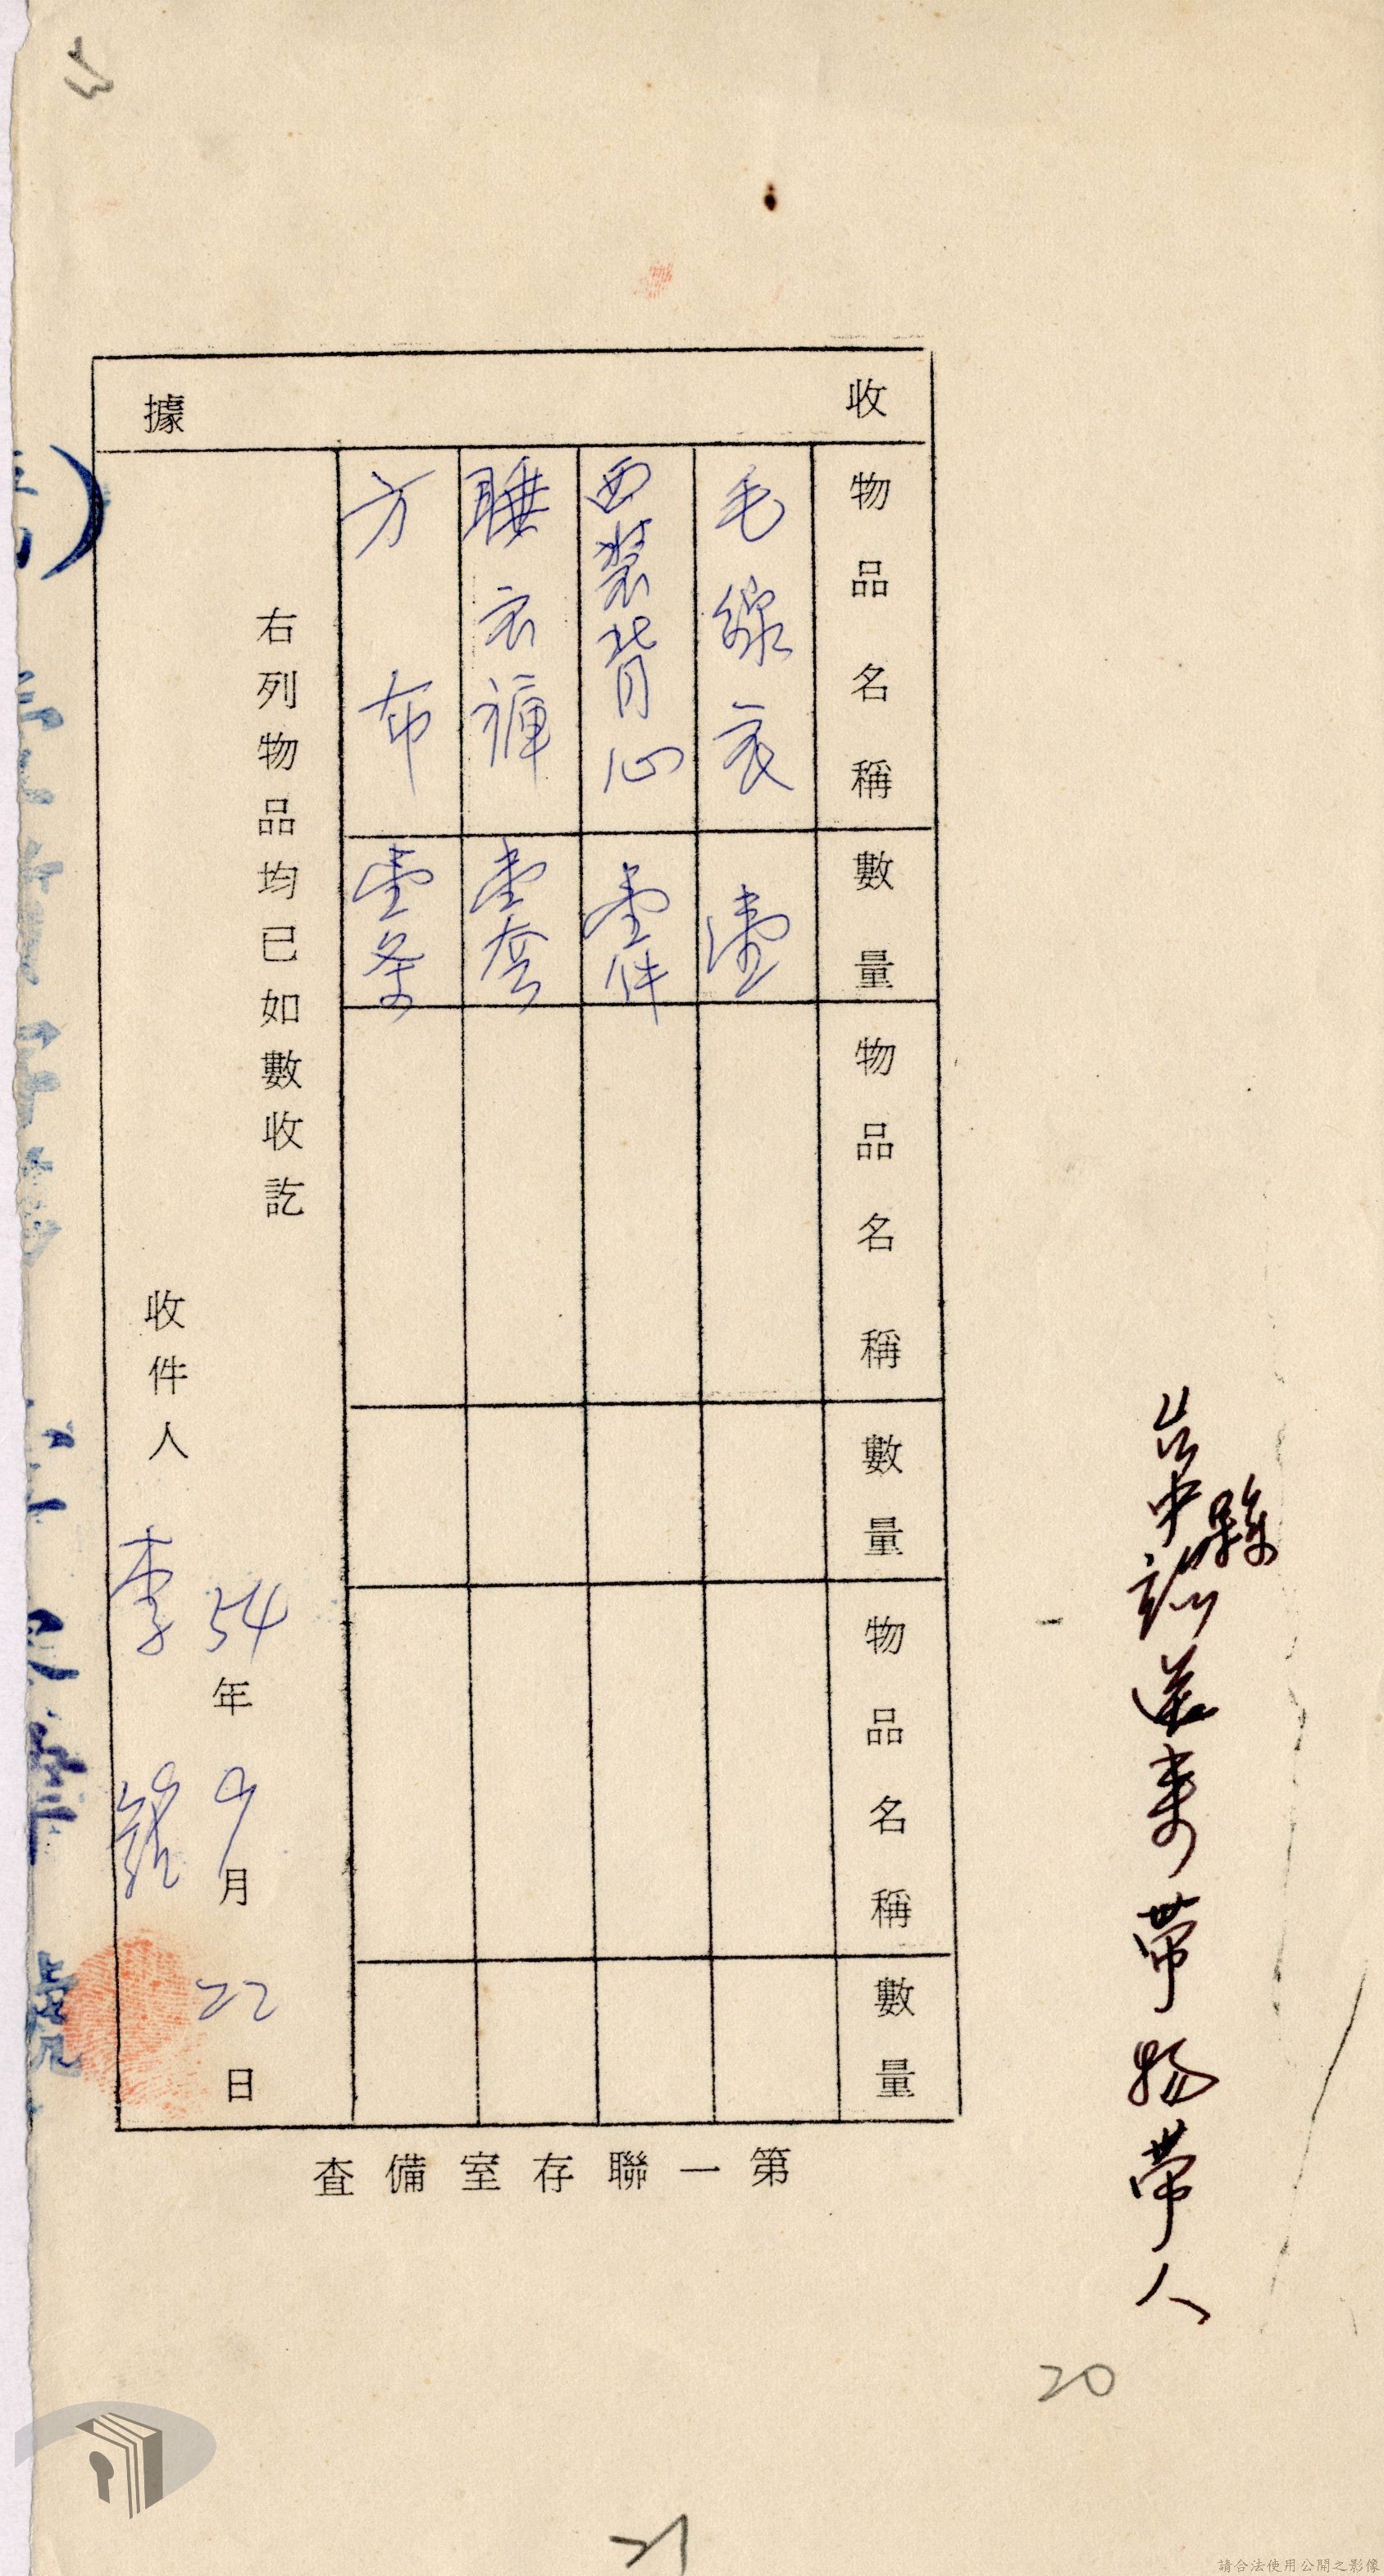 台中縣
送來帶物帶人
收據
物品名稱 數量 物品名稱 數量 物品名稱 數量
毛線衣 壹
西裝背心 壹件
睡衣褲 壹套
方布 壹条
右列物品均已如數收訖
54年9月22日
收件人 李
第一聯存室備查
20
21
請合法使用公開之影像